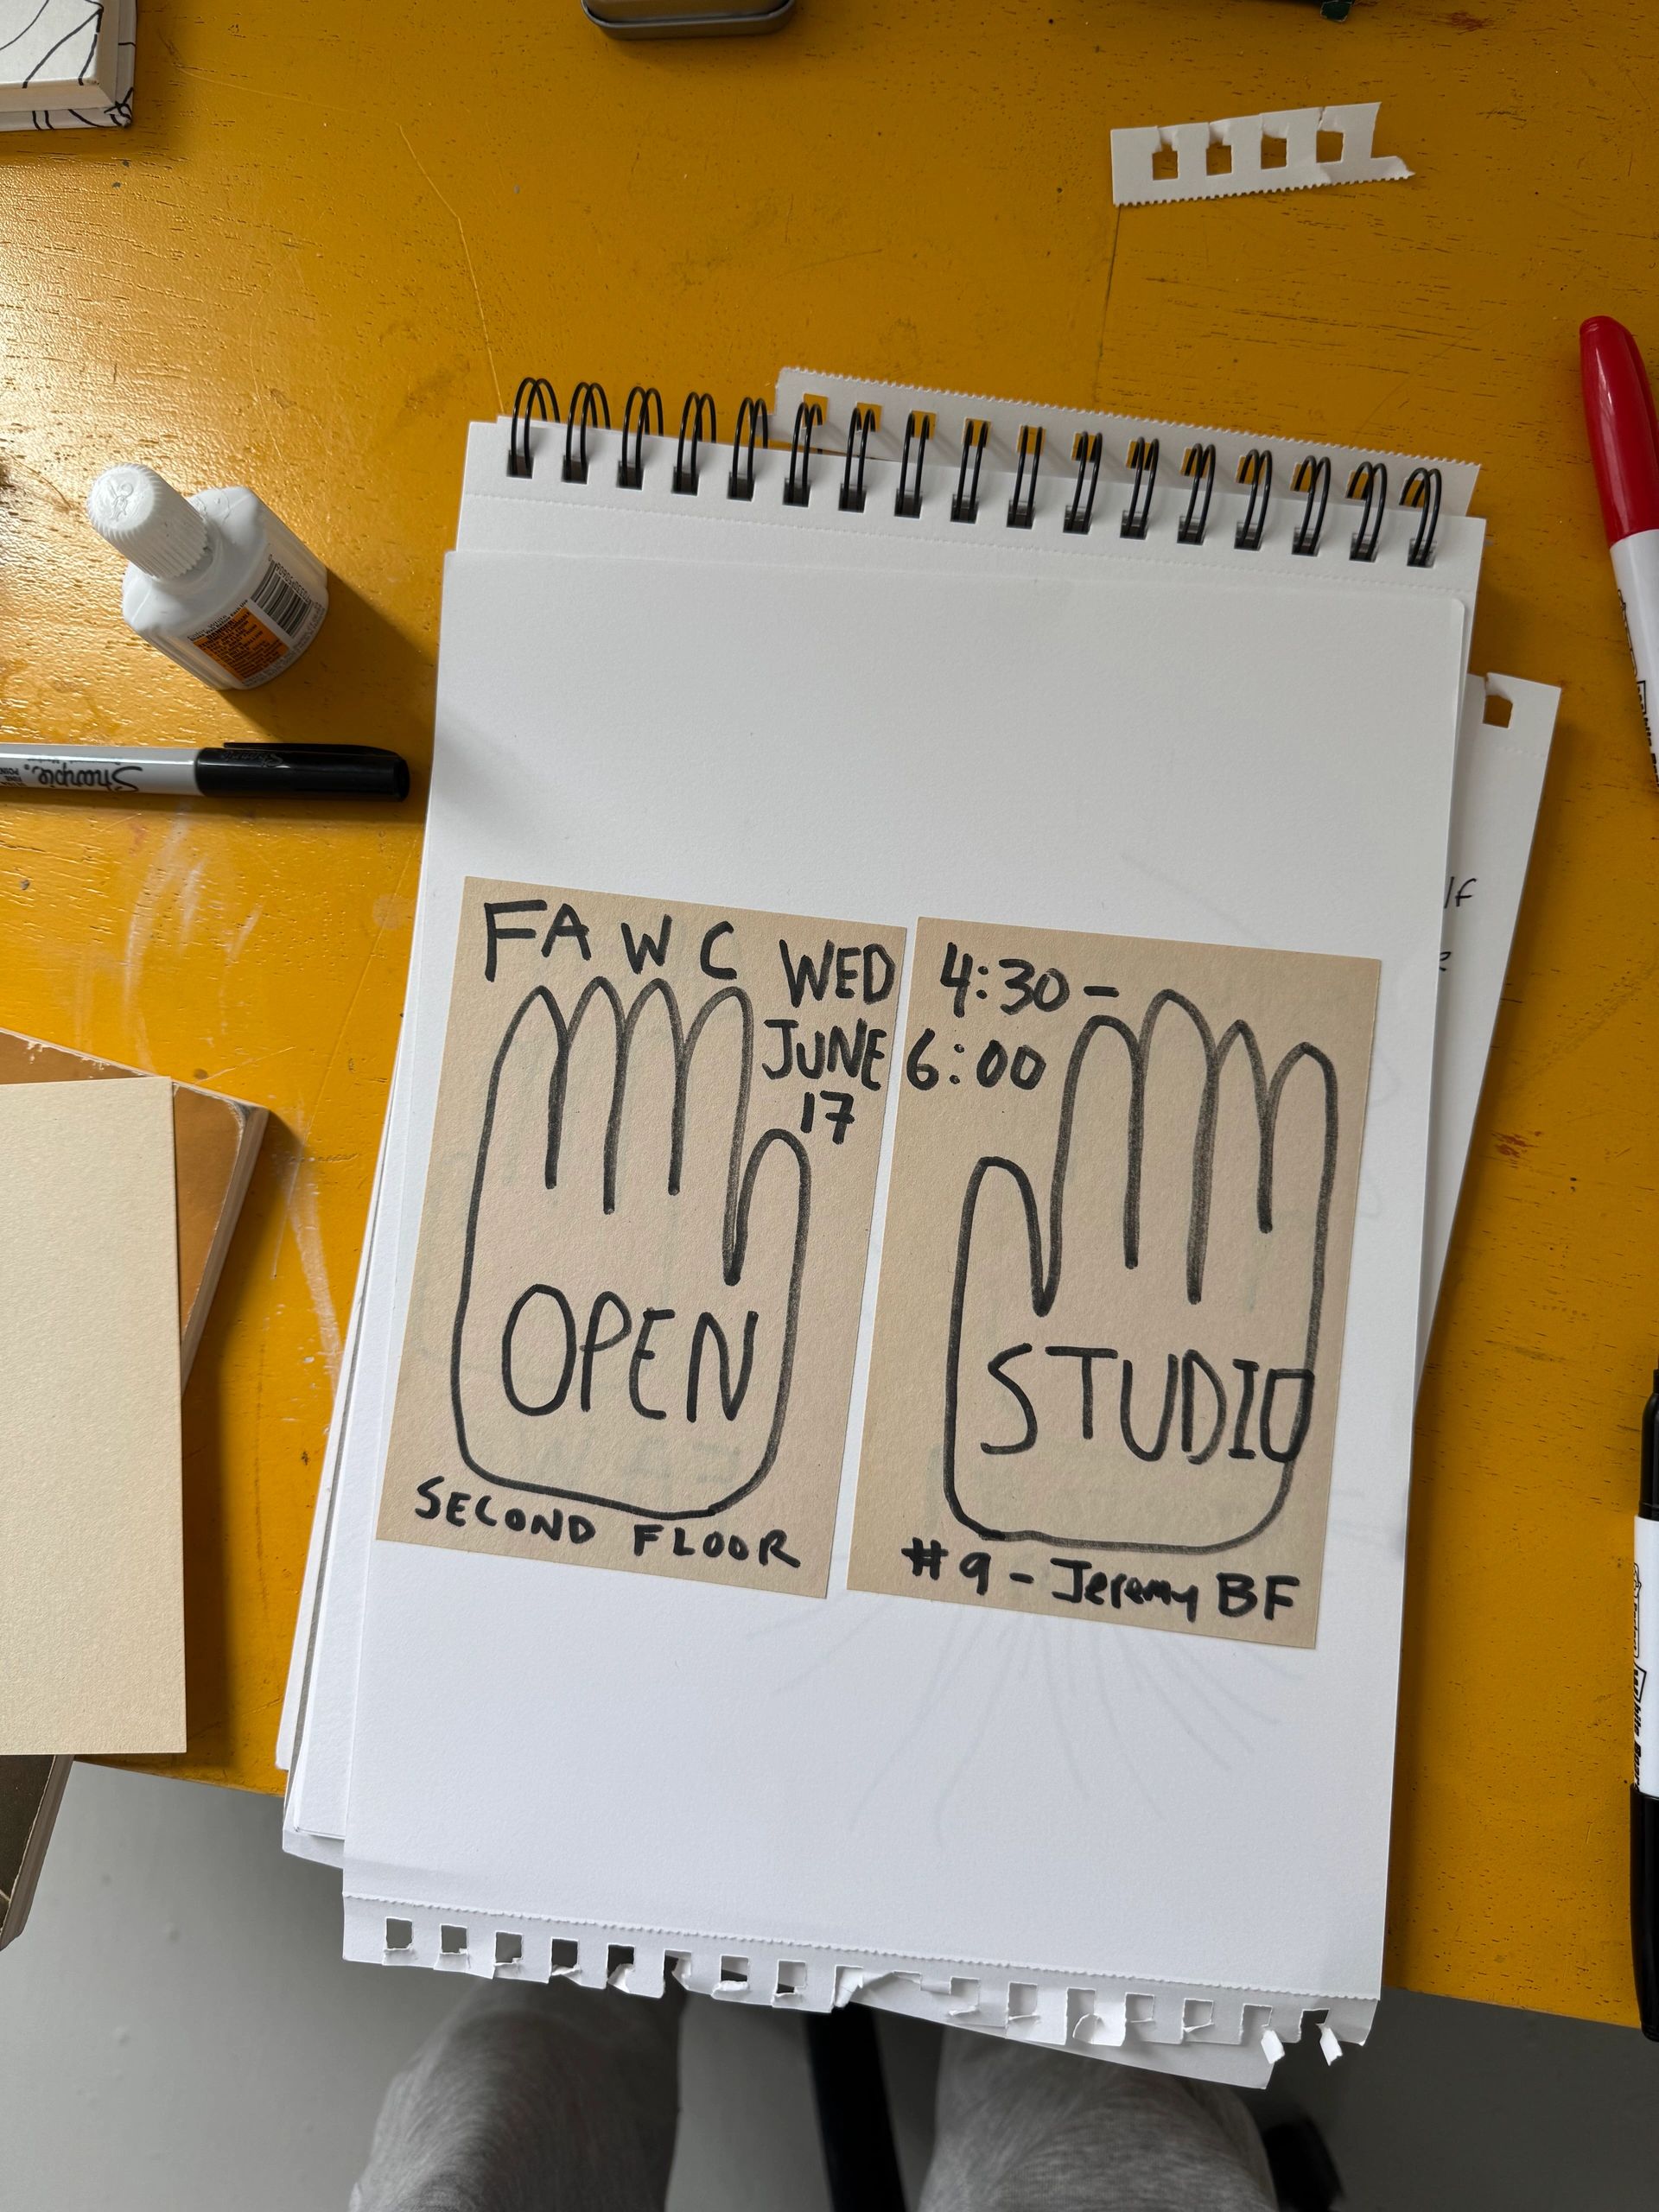 FAWC
WED
JUNE
17
OPEN
SECOND FLOOR
4:30-
6:00
STUDIO
#9-Jeremy BF
Sharpie.